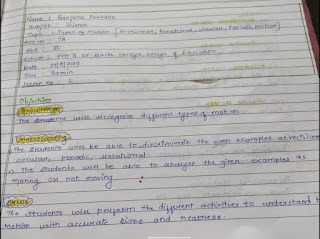 Name : Sanjana
Subject : Science
Topic : Types of Motion (Rectilinear, Rotational, circular, Periodic motion)
Roll no : 78
Std : VI
School : College of Education
Date
Time : 30 min
Lesson no : 2
Objectives
Knowledge
The students will recognise different types of motion.
Understanding
The Students will be able to discriminate the given examples as rectilinear
circular, periodic, rotational.
The Students will be able to analyse the given examples as
moving or not moving.
The students will perform the different activities to understand
Motion with accurate time and neatness.